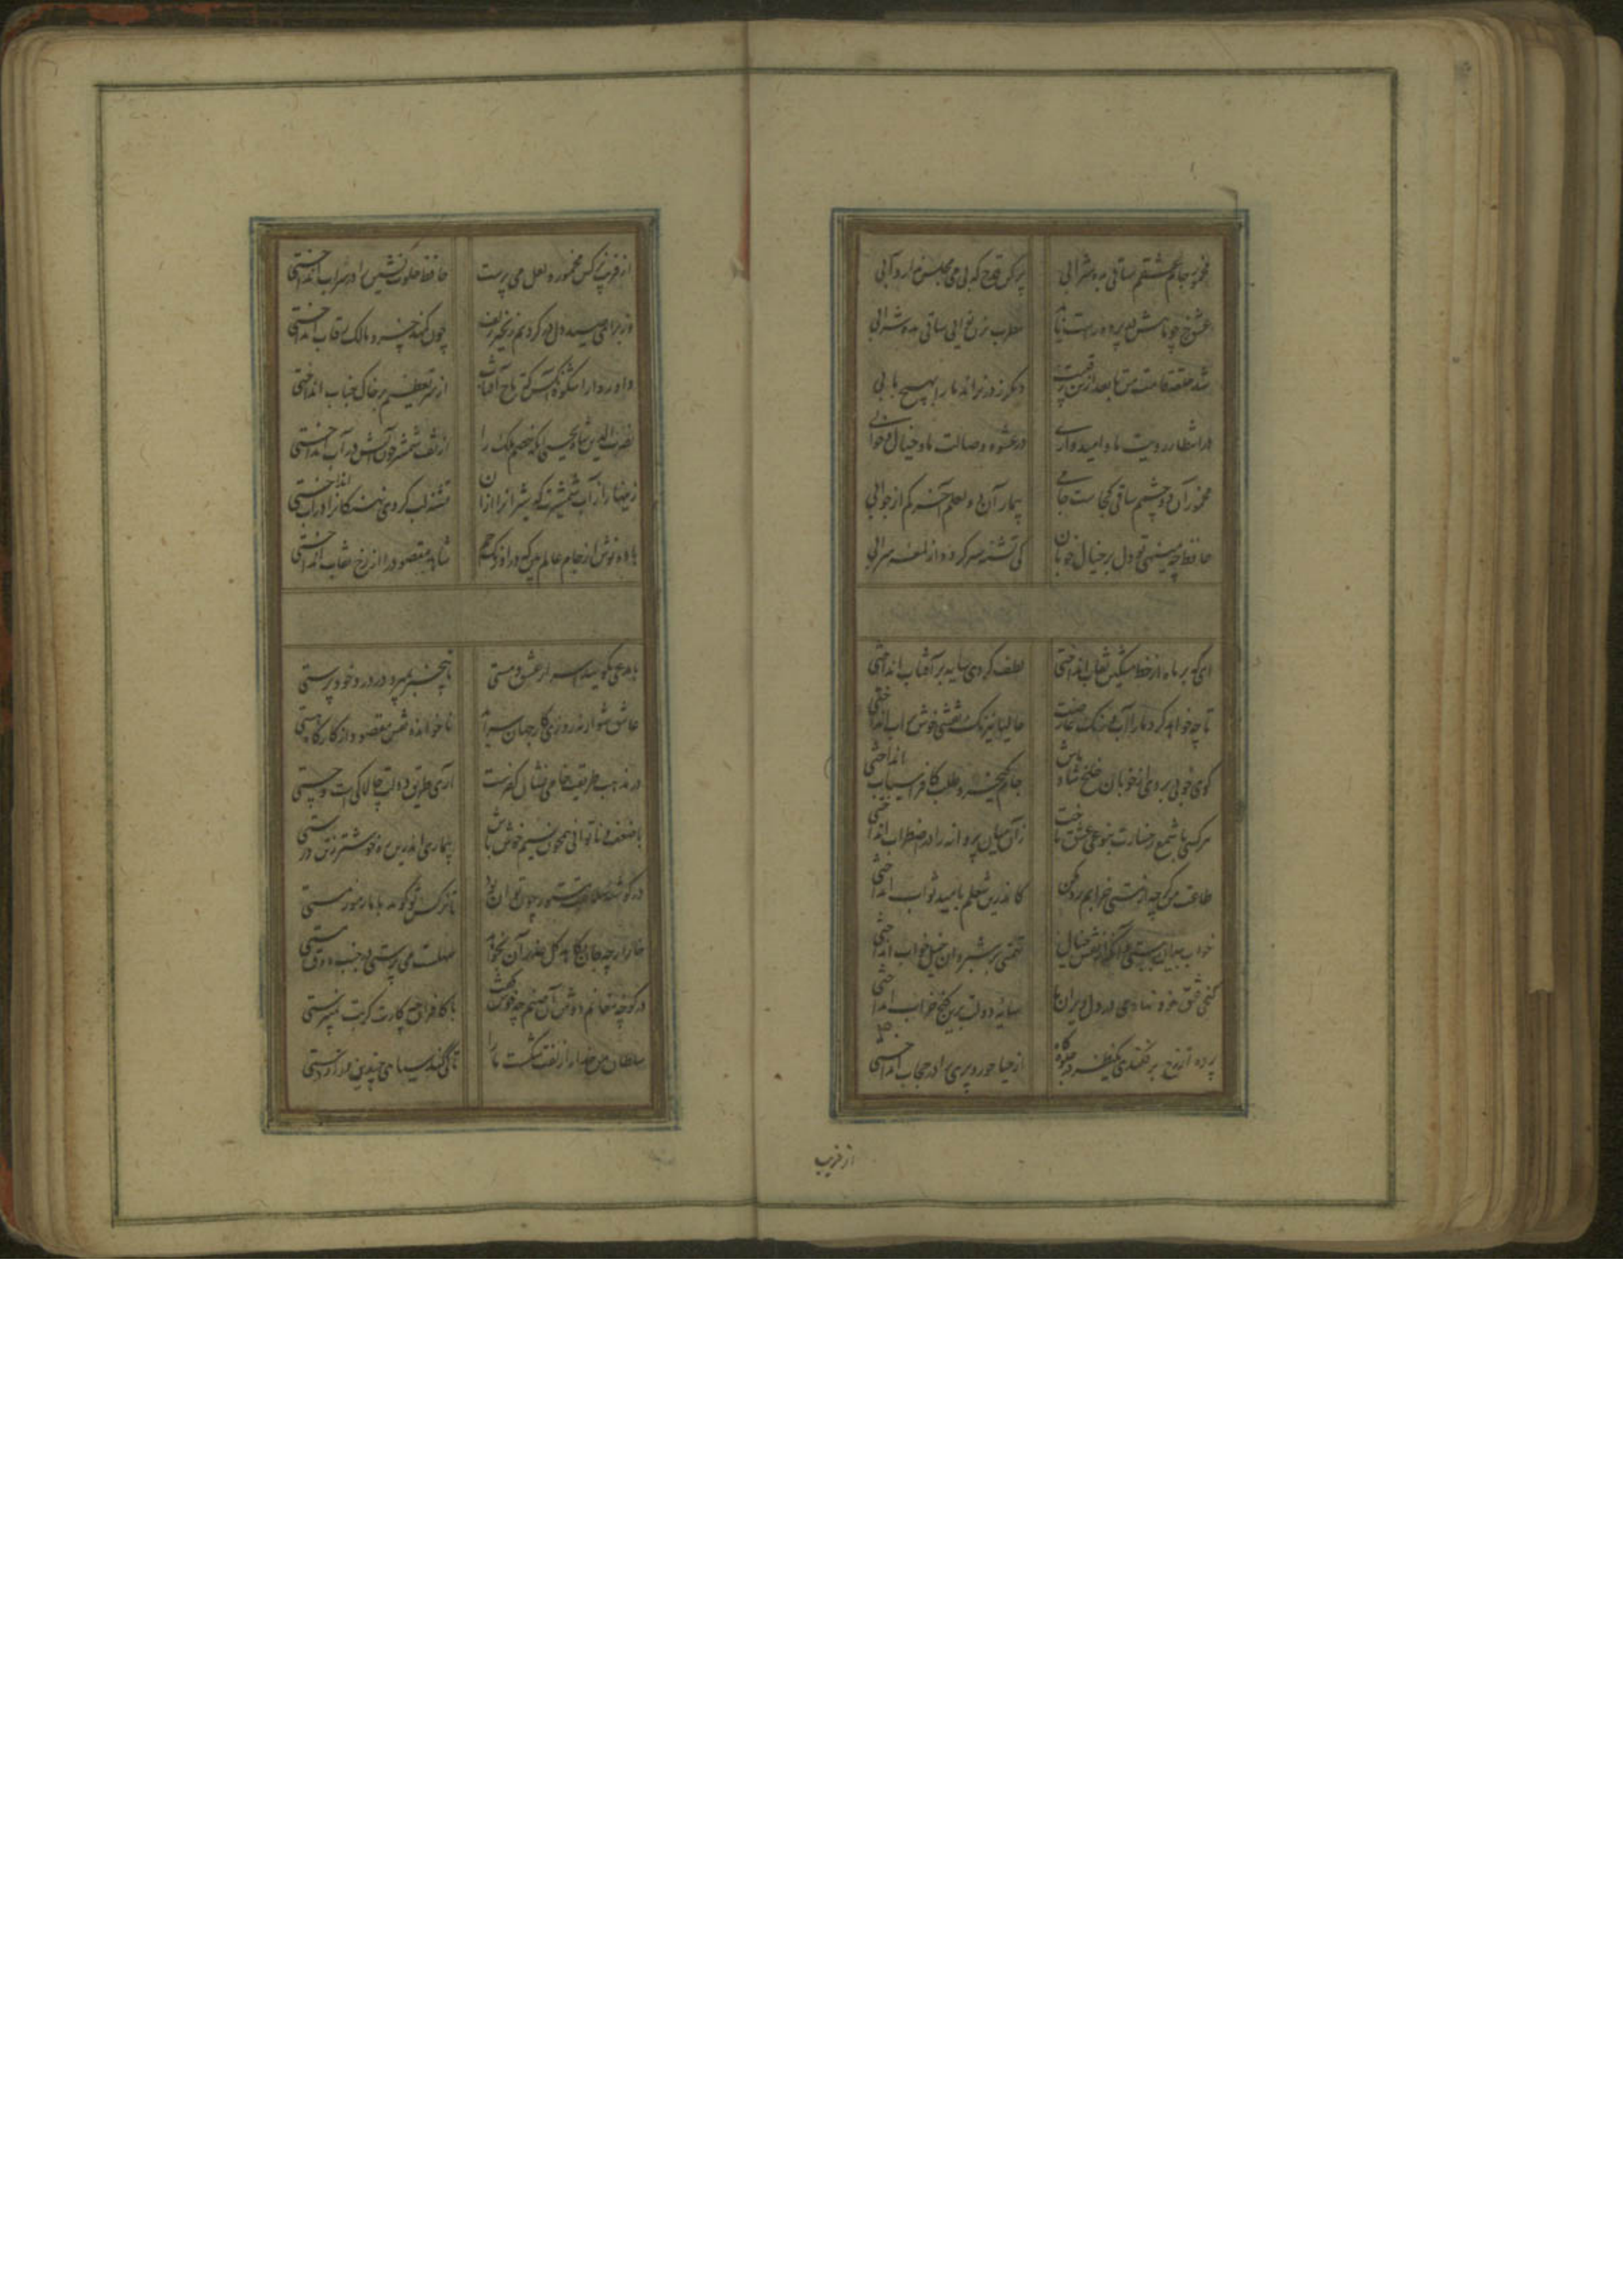 مخمور جام عشقم ساقی بده شرابی پر کن قدح که بی می مجلس ندارد آبی
عشق رخ چو ماهش در پرده راست ناید مطرب بزن نوایی ساقی بده شرابی
شد حلقه قامت من تا بعد ازین رقیبت دیگر ز در نراند ما را بهیچ بابی
در انتظار رویت ما و امیدواری در عشوه وصالت ما و خیال و خوابی
مخمور آن دو چشمم ساقی کجاست جامی بیمار آن دو لعلم آخر کم از جوابی
حافظ چه می نهی تو دل بر خیال خوبان کی تشنه سیر گردد از لمعه سرابی
ای که بر ماه از خط مشکین نقاب انداختی لطف کردی سایه بر آفتاب انداختی
تا چه خواهد کرد با ما آب و رنگ عارضت حالیا نیرنگ نقشی خوش بر آب انداختی
گوی خوبی بردی از خوبان خلخ شاد باش جام کیخسرو طلب کافراسیاب انداختی
هر کسی با شمع رخسارت بنوعی عشق باخت زان میان پروانه را در اضطراب انداختی
طاعت من گرچه از مستی خرابم رد مکن کاندرین شغلم بامید ثواب انداختی
خواب بیداران ببستی وانگه از نقش خیال تهمتی بر شبروان خیل خواب انداختی
گنج عشق خود نهادی در دل ویران ما سایه دولت برین کنج خراب انداختی
پرده از رخ برفکندی یک نظر در جلوه گاه از حیا حور و پری را در حجاب انداختی
از فریب
از فریب نرگس مخمور و لعل می پرست حافظ خلوت نشین را در شراب انداختی
وز برای صید دل در گردنم زنجیر زلف چون کمند خسرو مالک رقاب انداختی
داور دارا شکوه ای آنکه تاج آفتاب از سر تعظیم بر خاک جناب انداختی
نصرة الدین شاه یحیی آنکه خصم ملک را از تف شمشیر چون آتش در آب انداختی
زینهار از آب شمشیرت که شیران را ازان تشنه لب کردی و نهنگان را در آب انداختی
باده نوش از جام عالم بین که در اورنگ جم شاهد مقصود را از رخ نقاب انداختی
با مدعی مگویید اسرار عشق و مستی تا بیخبر بمیرد در درد خودپرستی
عاشق شو ار نه روزی کار جهان سر آید ناخوانده نقش مقصود از کارگاه هستی
در مذهب طریقت خامی نشان کفرست آری طریق دولت چالاکی است و چستی
با ضعف و ناتوانی همچون نسیم خوش باش بیماری اندرین ره خوشتر ز تن درستی
در گوشه سلامت مستور چون توان بود تا نرگس تو گوید با ما رموز مستی
خار ارچه جان بکاهد گل عذر آن بخواهد سهلست تلخی می در جنب ذوق مستی
در کوچه مغانم دوش آن صنم چه خوش گفت با کافران چه کارت گر بت نمی پرستی
سلطان من خدا را زلفت شکست ما را تا کی کند سیاهی چندین درازدستی